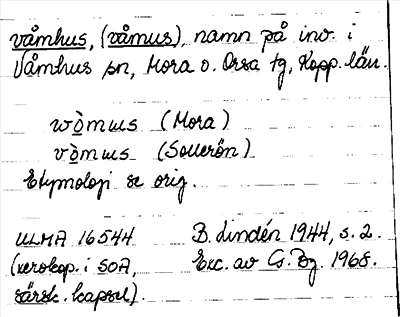 våmhus, (våmus), namn på inv. i
Våmhus sn, Mora o. Orsa tg, Kopp. län.
wòmɯs (Mora)
vòmɯs (Sollerön)
Etymologi se orig.
ULMA 16544 B. Lindén 1944, s. 2.
(xerokop. i SOA, Exc. av G. Bg. 1968.
särsk. kapsel).